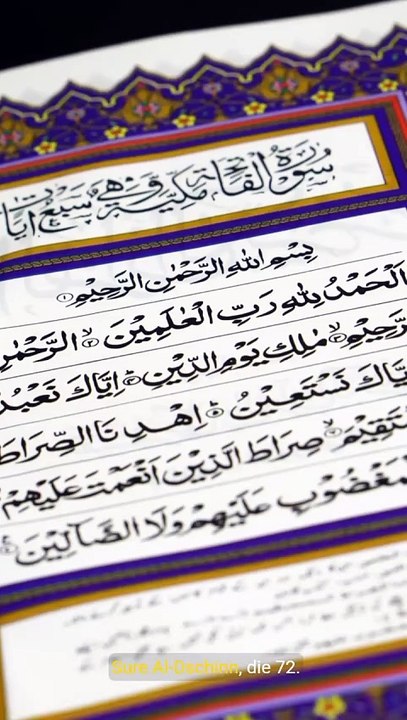 سُوْرَةُ الْفَاتِحَةِ مَكِّيَّةٌ وَّهِيَ سَبْعُ اٰيَاتٍ
بِسْمِ اللّٰهِ الرَّحْمٰنِ الرَّحِيْمِ ۝۱
اَلْحَمْدُ لِلّٰهِ رَبِّ الْعٰلَمِيْنَ ۝۲ الرَّحْمٰنِ
الرَّحِيْمِ ۝۳ مٰلِكِ يَوْمِ الدِّيْنِ ۝۴ اِيَّاكَ نَعْبُدُ
اِيَّاكَ نَسْتَعِيْنُ ۝۵ اِهْدِنَا الصِّرَاطَ
سْتَقِيْمَ ۝۶ صِرَاطَ الَّذِيْنَ اَنْعَمْتَ عَلَيْهِمْ
مَغْضُوْبِ عَلَيْهِمْ وَلَا الضَّآلِّيْنَ ۝۷
Sure Al-Dschinn, die 72.